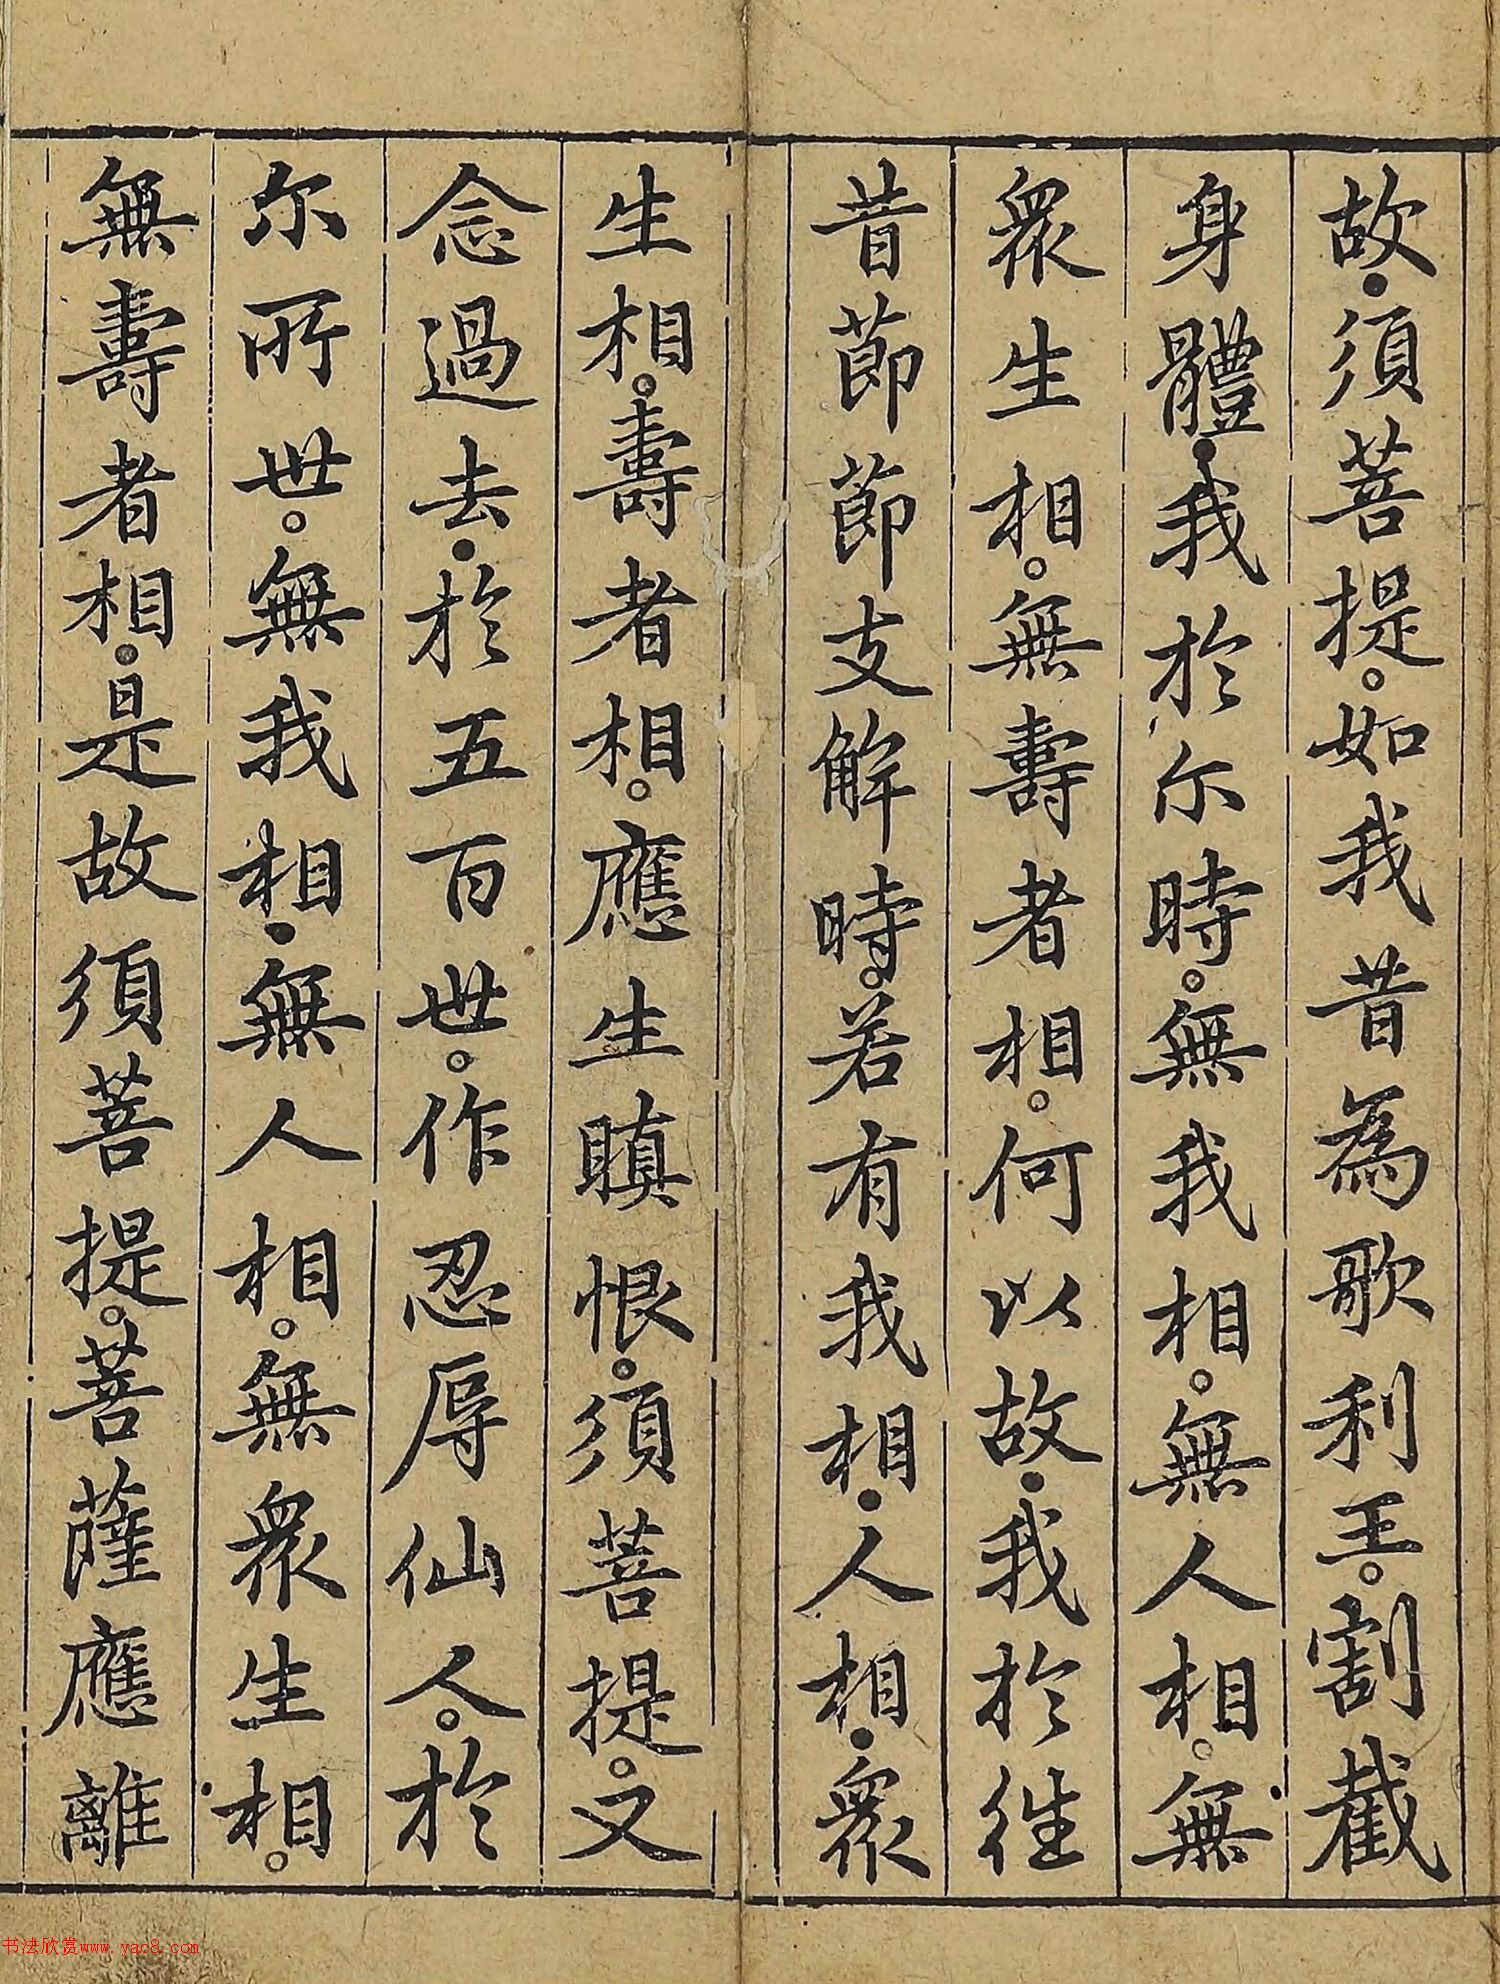 故·須菩提。如我昔為歌利王。割截
身體·我於尒時。無我相。無人相。無
衆生相。無壽者相。何以故·我於徃
昔節節支解時。若有我相·人相·衆
生相。壽者相。應生瞋恨。須菩提。又
念過去·於五百世。作忍辱仙人。於
尒所世。無我相·無人相。無衆生相。
無壽者相。是故須菩提。菩薩應離
书法欣赏www.yac8.com